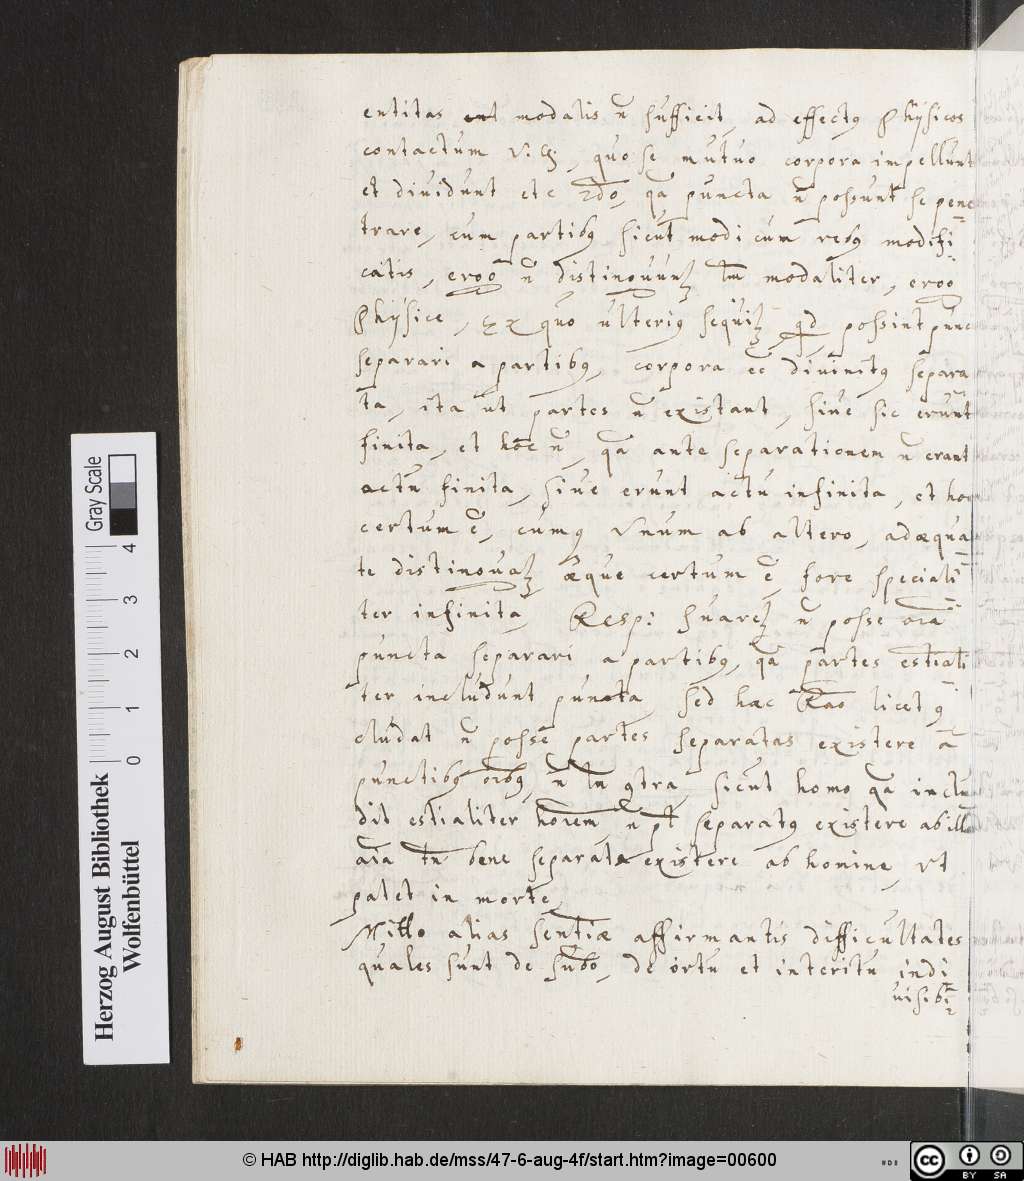 entitas ent modalis n̄ sufficit, ad effectꝯ Physicos
contactum v. g., quo se mutuo corpora impellunt
et diuidunt etc 2do, qa puncta n̄ possunt se pene
trare, cum partibꝯ sicut modi cum rebꝯ modifi
catis, ergo n̄ distinguunt tm modaliter, ergo
Physice, Ex quo ulteriꝯ sequit qd possint punc
separari a partibꝯ, corpora ee diuinitꝯ separa
ta, ita ut partes n̄ existant, siue sic erunt
finita, et hoc n̄, qa ante separationem n̄ erant
actu finita, siue erunt actu infinita, et hoc
certum ē, cumꝗ Vnum ab altero, adæqua
te distinguat æque certum ē, fore speciali
ter infinita, Resp: Suarez n̄ posse oīa
puncta separari a partibꝯ, qa partes estiali
ter includunt puncta, sed hæc Rāo licet ꝯ
cludat n̄ posse partes separatas existere ā
punctibꝯ oībꝯ, n̄ tn ꝯtra, sicut homo qa inclu
dit estialiter hoiem, n pt separatꝯ existere ab illa
aīa tn bene separata existere ab homine, ut
patet in morte,
Mitto alias sentiæ affirmantis difficultates
quales sunt de subo, de ortu et interitu indi
uisibi
Gray Scale
4
3
2
1
0
Herzog August Bibliothek
Wolfenbüttel
© HAB http://diglib.hab.de/mss/47-6-aug-4f/start.htm?image=00600
cc BY SA